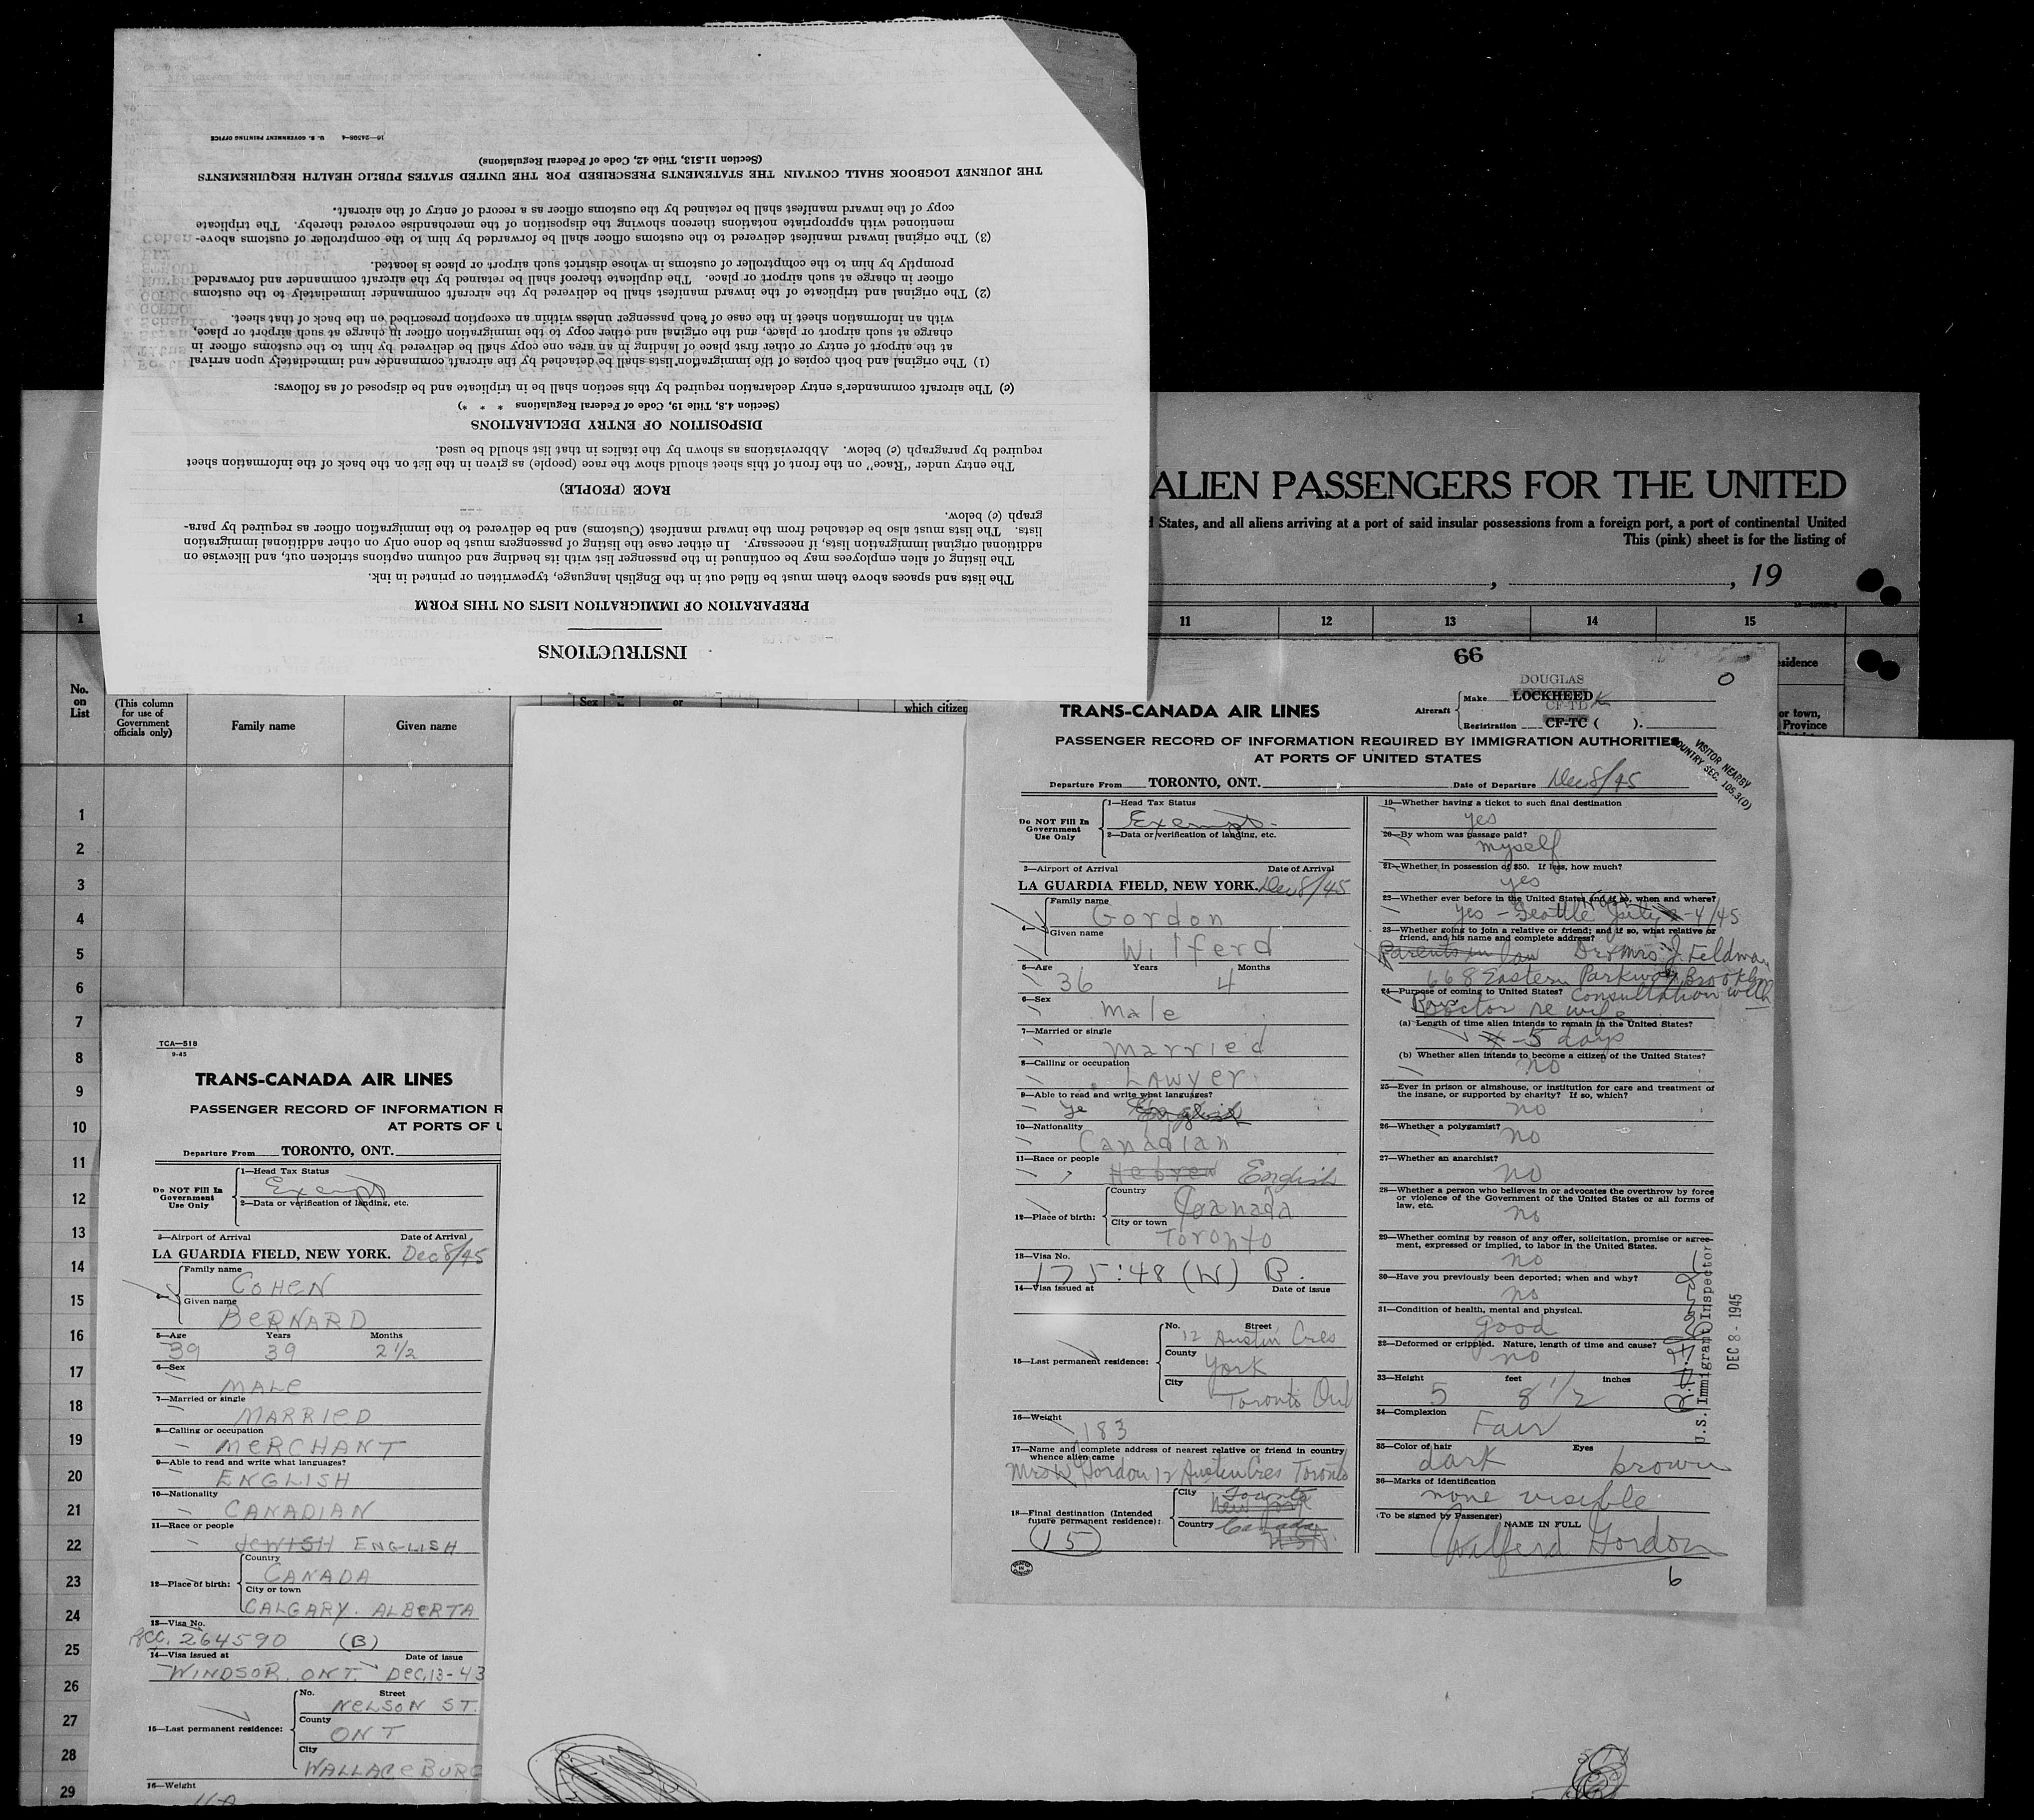 INSTRUCTIONS
PREPARATION OF IMMIGRATION LISTS ON THIS FORM
The lists and spaces above them must be filled out in the English language, typewritten or printed in ink.
The listing of alien employees may be continued in the passenger list with its heading and column captions stricken out, and likewise on
additional original immigration lists, if necessary. In either case the listing of passengers must be done only on other additional immigration
lists. The lists must also be detached from the inward manifest (Customs) and be delivered to the immigration officer as required by para-
graph (c) below.
RACE (PEOPLE)
The entry under "Race" on the front of this sheet should show the race (people) as given in the list on the back of the information sheet
required by paragraph (c) below. Abbreviations as shown by the italics in that list should be used.
DISPOSITION OF ENTRY DECLARATIONS
(Section 4.8, Title 19, Code of Federal Regulations * * *)
(c) The aircraft commander's entry declaration required by this section shall be in triplicate and be disposed of as follows:
(1) The original and both copies of the immigration lists shall be detached by the aircraft commander and immediately upon arrival
at the airport of entry or other first place of landing in an area one copy shall be delivered by him to the customs officer in
charge at such airport or place, and the original and other copy to the immigration officer in charge at such airport or place,
with an information sheet in the case of each passenger unless within an exception prescribed on the back of that sheet.
(2) The original and triplicate of the inward manifest shall be delivered by the aircraft commander immediately to the customs
officer in charge at such airport or place. The duplicate thereof shall be retained by the aircraft commander and forwarded
promptly by him to the comptroller of customs in whose district such airport or place is located.
(3) The original inward manifest delivered to the customs officer shall be forwarded by him to the comptroller of customs above-
mentioned with appropriate notations thereon showing the disposition of the merchandise covered thereby. The triplicate
copy of the inward manifest shall be retained by the customs officer as a record of entry of the aircraft.
THE JOURNEY LOGBOOK SHALL CONTAIN THE STATEMENTS PRESCRIBED FOR THE UNITED STATES PUBLIC HEALTH REQUIREMENTS
(Section 11.513, Title 42, Code of Federal Regulations)
16—24598-4 U. S. GOVERNMENT PRINTING OFFICE
ALIEN PASSENGERS FOR THE UNITED
States, and all aliens arriving at a port of said insular possessions from a foreign port, a port of continental United
This (pink) sheet is for the listing of
, , 19
1 11 12 13 14 15
No. on List
(This column for use of Government officials only)
Family name
Given name
Sex
or
which citizen
esidence
or town,
Province
1
2
3
4
5
6
7
8
9
10
11
12
13
14
15
16
17
18
19
20
21
22
23
24
25
26
27
28
29
TCA—518
9-45
TRANS-CANADA AIR LINES
PASSENGER RECORD OF INFORMATION R
AT PORTS OF U
Departure From TORONTO, ONT.
Do NOT Fill In Government Use Only
1—Head Tax Status
Exempt
2—Data or verification of landing, etc.
3—Airport of Arrival Date of Arrival
LA GUARDIA FIELD, NEW YORK. Dec 8/45
4— Family name
COHEN
Given name
BERNARD
5—Age Years Months
39 39 2 1/2
6—Sex
MALE
7—Married or single
MARRIED
8—Calling or occupation
MERCHANT
9—Able to read and write what languages?
ENGLISH
10—Nationality
CANADIAN
11—Race or people
JEWISH ENGLISH
12—Place of birth:
Country
CANADA
City or town
CALGARY. ALBERTA
13—Visa No.
264590 (B)
14—Visa issued at Date of issue
WINDSOR. ONT. DEC. 13-43
15—Last permanent residence:
No. Street
NELSON ST.
County
ONT
City
WALLACEBURG
16—Weight
66
TRANS-CANADA AIR LINES
Aircraft
Make DOUGLAS LOCKHEED
CF-TD
Registration CF-TC ( ).
PASSENGER RECORD OF INFORMATION REQUIRED BY IMMIGRATION AUTHORITIES
AT PORTS OF UNITED STATES
VISITOR NEARBY
COUNTRY SEC. 105.3(D)
Departure From TORONTO, ONT. Date of Departure Dec 8/45
Do NOT Fill In Government Use Only
1—Head Tax Status
Exempt
2—Data or verification of landing, etc.
3—Airport of Arrival Date of Arrival
LA GUARDIA FIELD, NEW YORK. Dec 8/45
4— Family name
Gordon
Given name
Wilferd
5—Age Years Months
36 4
6—Sex
Male
7—Married or single
Married
8—Calling or occupation
Lawyer
9—Able to read and write what languages?
English
10—Nationality
Canadian
11—Race or people
Hebrew English
12—Place of birth:
Country
Canada
City or town
Toronto
13—Visa No.
175:48 (W) B.
14—Visa issued at Date of issue
15—Last permanent residence:
No. Street
12 Austin Cres
County
York
City
Toronto Ont
16—Weight
183
17—Name and complete address of nearest relative or friend in country whence alien came
Mrs W Gordon 12 Austin Cres Toronto
18—Final destination (Intended future permanent residence):
City Toronto
New York
Country Canada
USA
(15)
19—Whether having a ticket to such final destination
yes
20—By whom was passage paid?
myself
21—Whether in possession of $50. If less, how much?
yes
22—Whether ever before in the United States and if so, when and where?
yes - Seattle July -4/45
23—Whether going to join a relative or friend; and if so, what relative or friend, and his name and complete address?
Parents in law Dr & Mrs. J. Feldman
668 Eastern Parkway Brooklyn
24—Purpose of coming to United States? Consultation with
Doctor re wife
(a) Length of time alien intends to remain in the United States?
5 days
(b) Whether alien intends to become a citizen of the United States?
no
25—Ever in prison or almshouse, or institution for care and treatment of the insane, or supported by charity? If so, which?
no
26—Whether a polygamist?
no
27—Whether an anarchist?
no
28—Whether a person who believes in or advocates the overthrow by force or violence of the Government of the United States or all forms of law, etc.
no
29—Whether coming by reason of any offer, solicitation, promise or agreement, expressed or implied, to labor in the United States.
no
30—Have you previously been deported; when and why?
no
31—Condition of health, mental and physical.
good
32—Deformed or crippled. Nature, length of time and cause?
no
33—Height feet inches
5 8 1/2
34—Complexion
Fair
35—Color of hair Eyes
dark brown
36—Marks of identification
none visible
(To be signed by Passenger) NAME IN FULL
Wilferd Gordon
6
U.S. Immigrant Inspector
DEC 8 - 1945